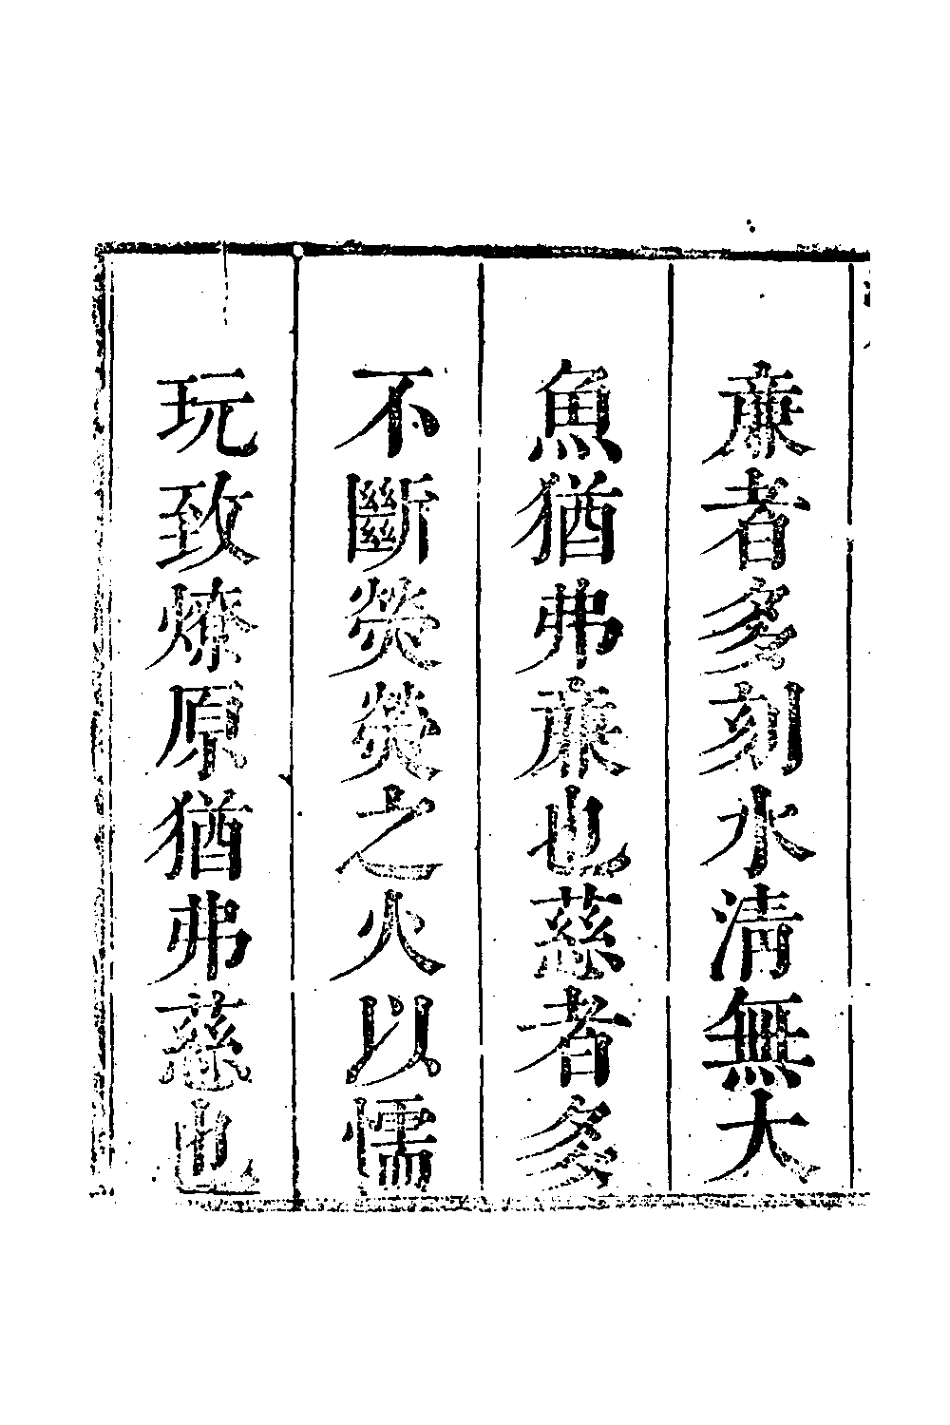 亷者多刻水清無大
魚猶弗亷也慈者多
不斷熒熒之火以懦
玩致燎原猶弗慈也